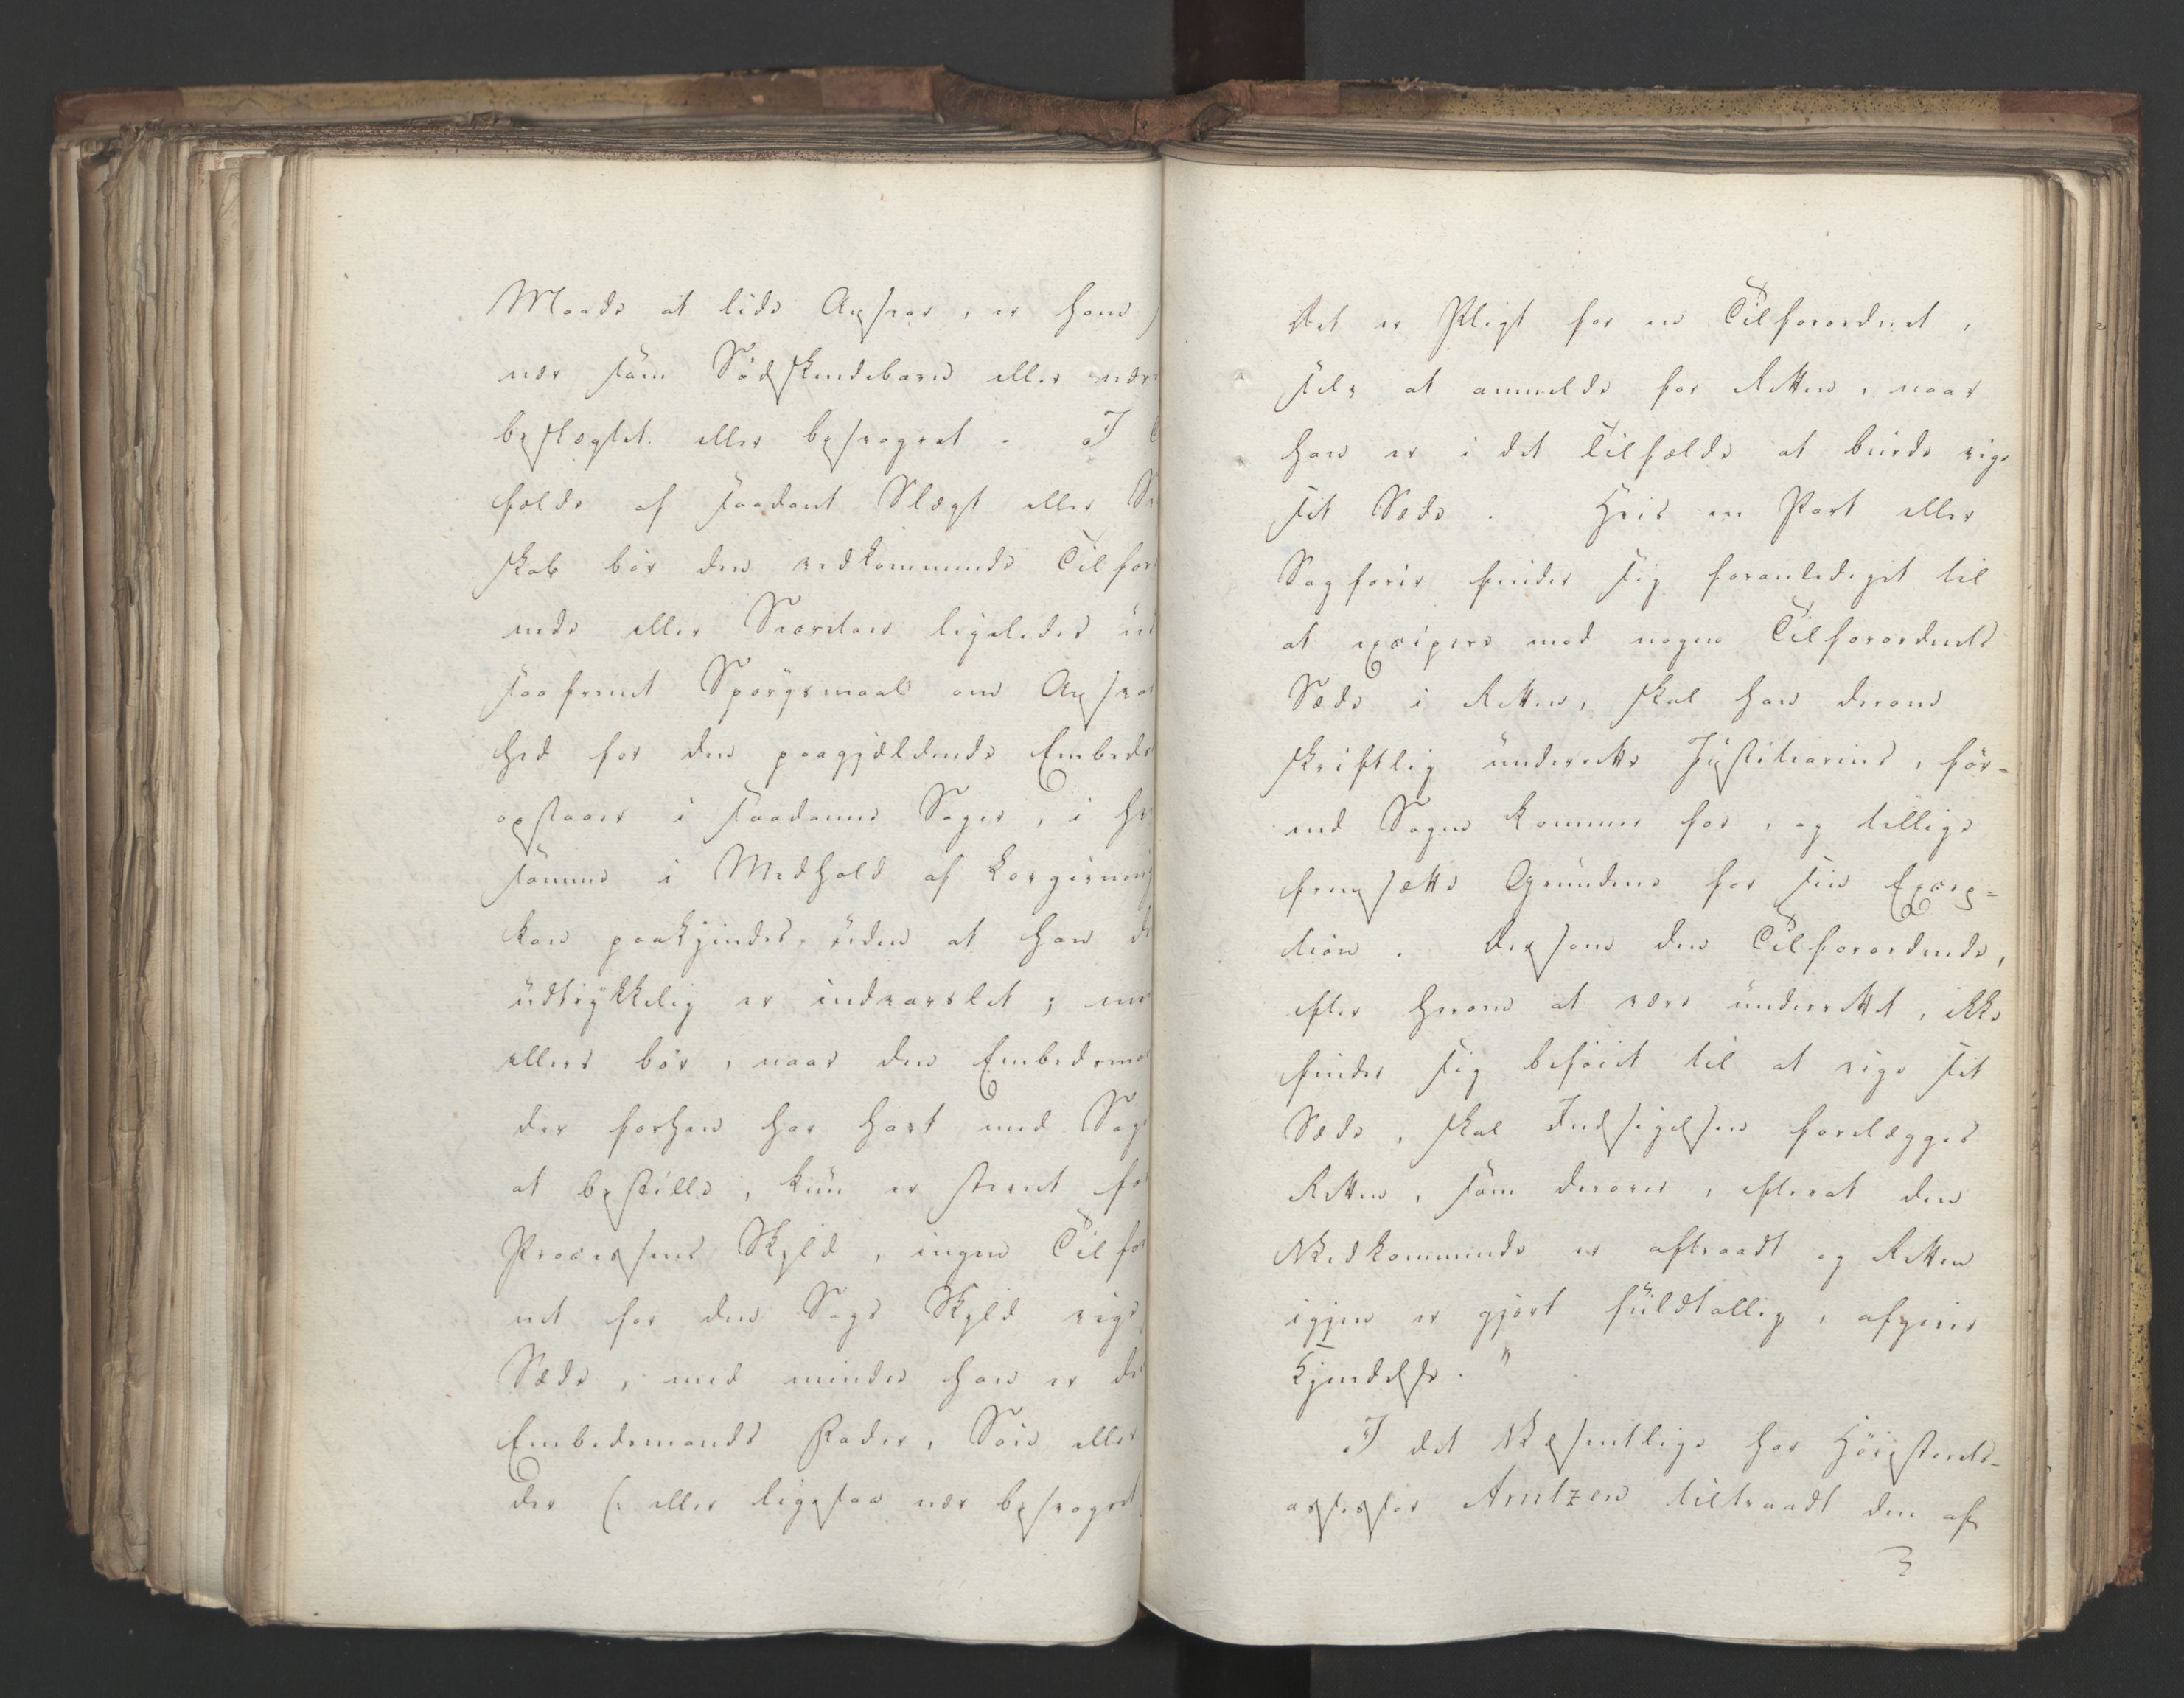 Maade at lide Ansvar, er ham
nær som Sødskendebarn eller nær
beslægtet eller besvogret. I
fælde af saadant Slægt eller
skab bør den vedkommende Tilfor
nede eller Secretair ligeledes
saafremt Spørgsmaal om Ansva
hed for den paagjældende Embeds
opstaaer i saadanne Sager, i
samme i Medhold af Lovgivning
kan paakjendes, uden at han
udtrykkelig er indvarslet; men
ellers bør, naar den Embedsma
der forhen har havt med Sag
at bestille, kun er stevnt for
Processens Skyld, ingen Tilfor
net for den Sags Skyld vige
Sæde, med mindre han er
Embedsmands Fader, Søn eller
der (: eller ligesaa nær besvogret
Det er Pligt for en Tilforordnet,
selv at anmelde for Retten, naar
han er i det Tilfælde at burde vige
sit Sæde. Hvis en Part eller
Sagfører finder sig foranlediget til
at excipere mod nogen Tilforordnets
Sæde i Retten, skal han derom
skriftlig underrette Justitiarius, før-
end Sagen kommer for, og tillige
fremsætte Grundene for sin Excep-
tion. Dersom den Tilforordnede,
efter herom at være underrettet, ikke
finder sig beføiet til at vige sit
Sæde, skal Indsigelsen forelægges
Retten, som derover, efterat den
Vedkommende er aftraadt og Retten
igjen er gjort fuldtallig, afgiver
Kjendelse."
I det Væsentlige har Høiesterets-
assessor Arntzen tiltraadt den af